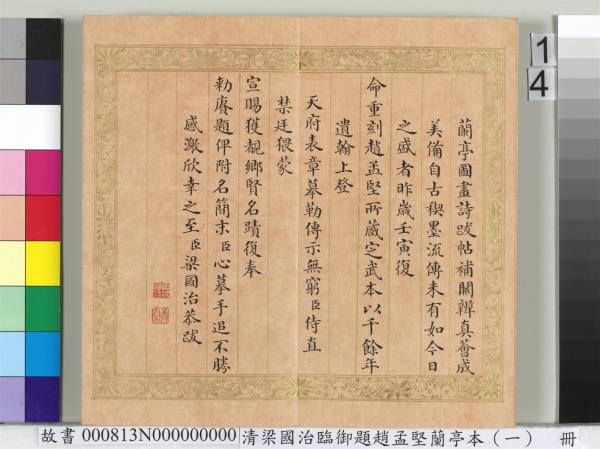 蘭亭圖畫詩跋帖補闕辨真薈成
美備自古稧墨流傳未有如今日
之盛者昨歲壬寅復
命重刻趙孟堅所藏定武本以千餘年
遺翰上登
天府表章摹勒傳示無窮臣侍直
禁廷猥蒙
宣賜獲覩鄉賢名蹟復奉
勅賡題俾附名簡末臣心摹手追不勝
感激欣幸之至臣梁國治恭跋
14
故書 000813N000000000 清梁國治臨御題趙孟堅蘭亭本(一) 冊